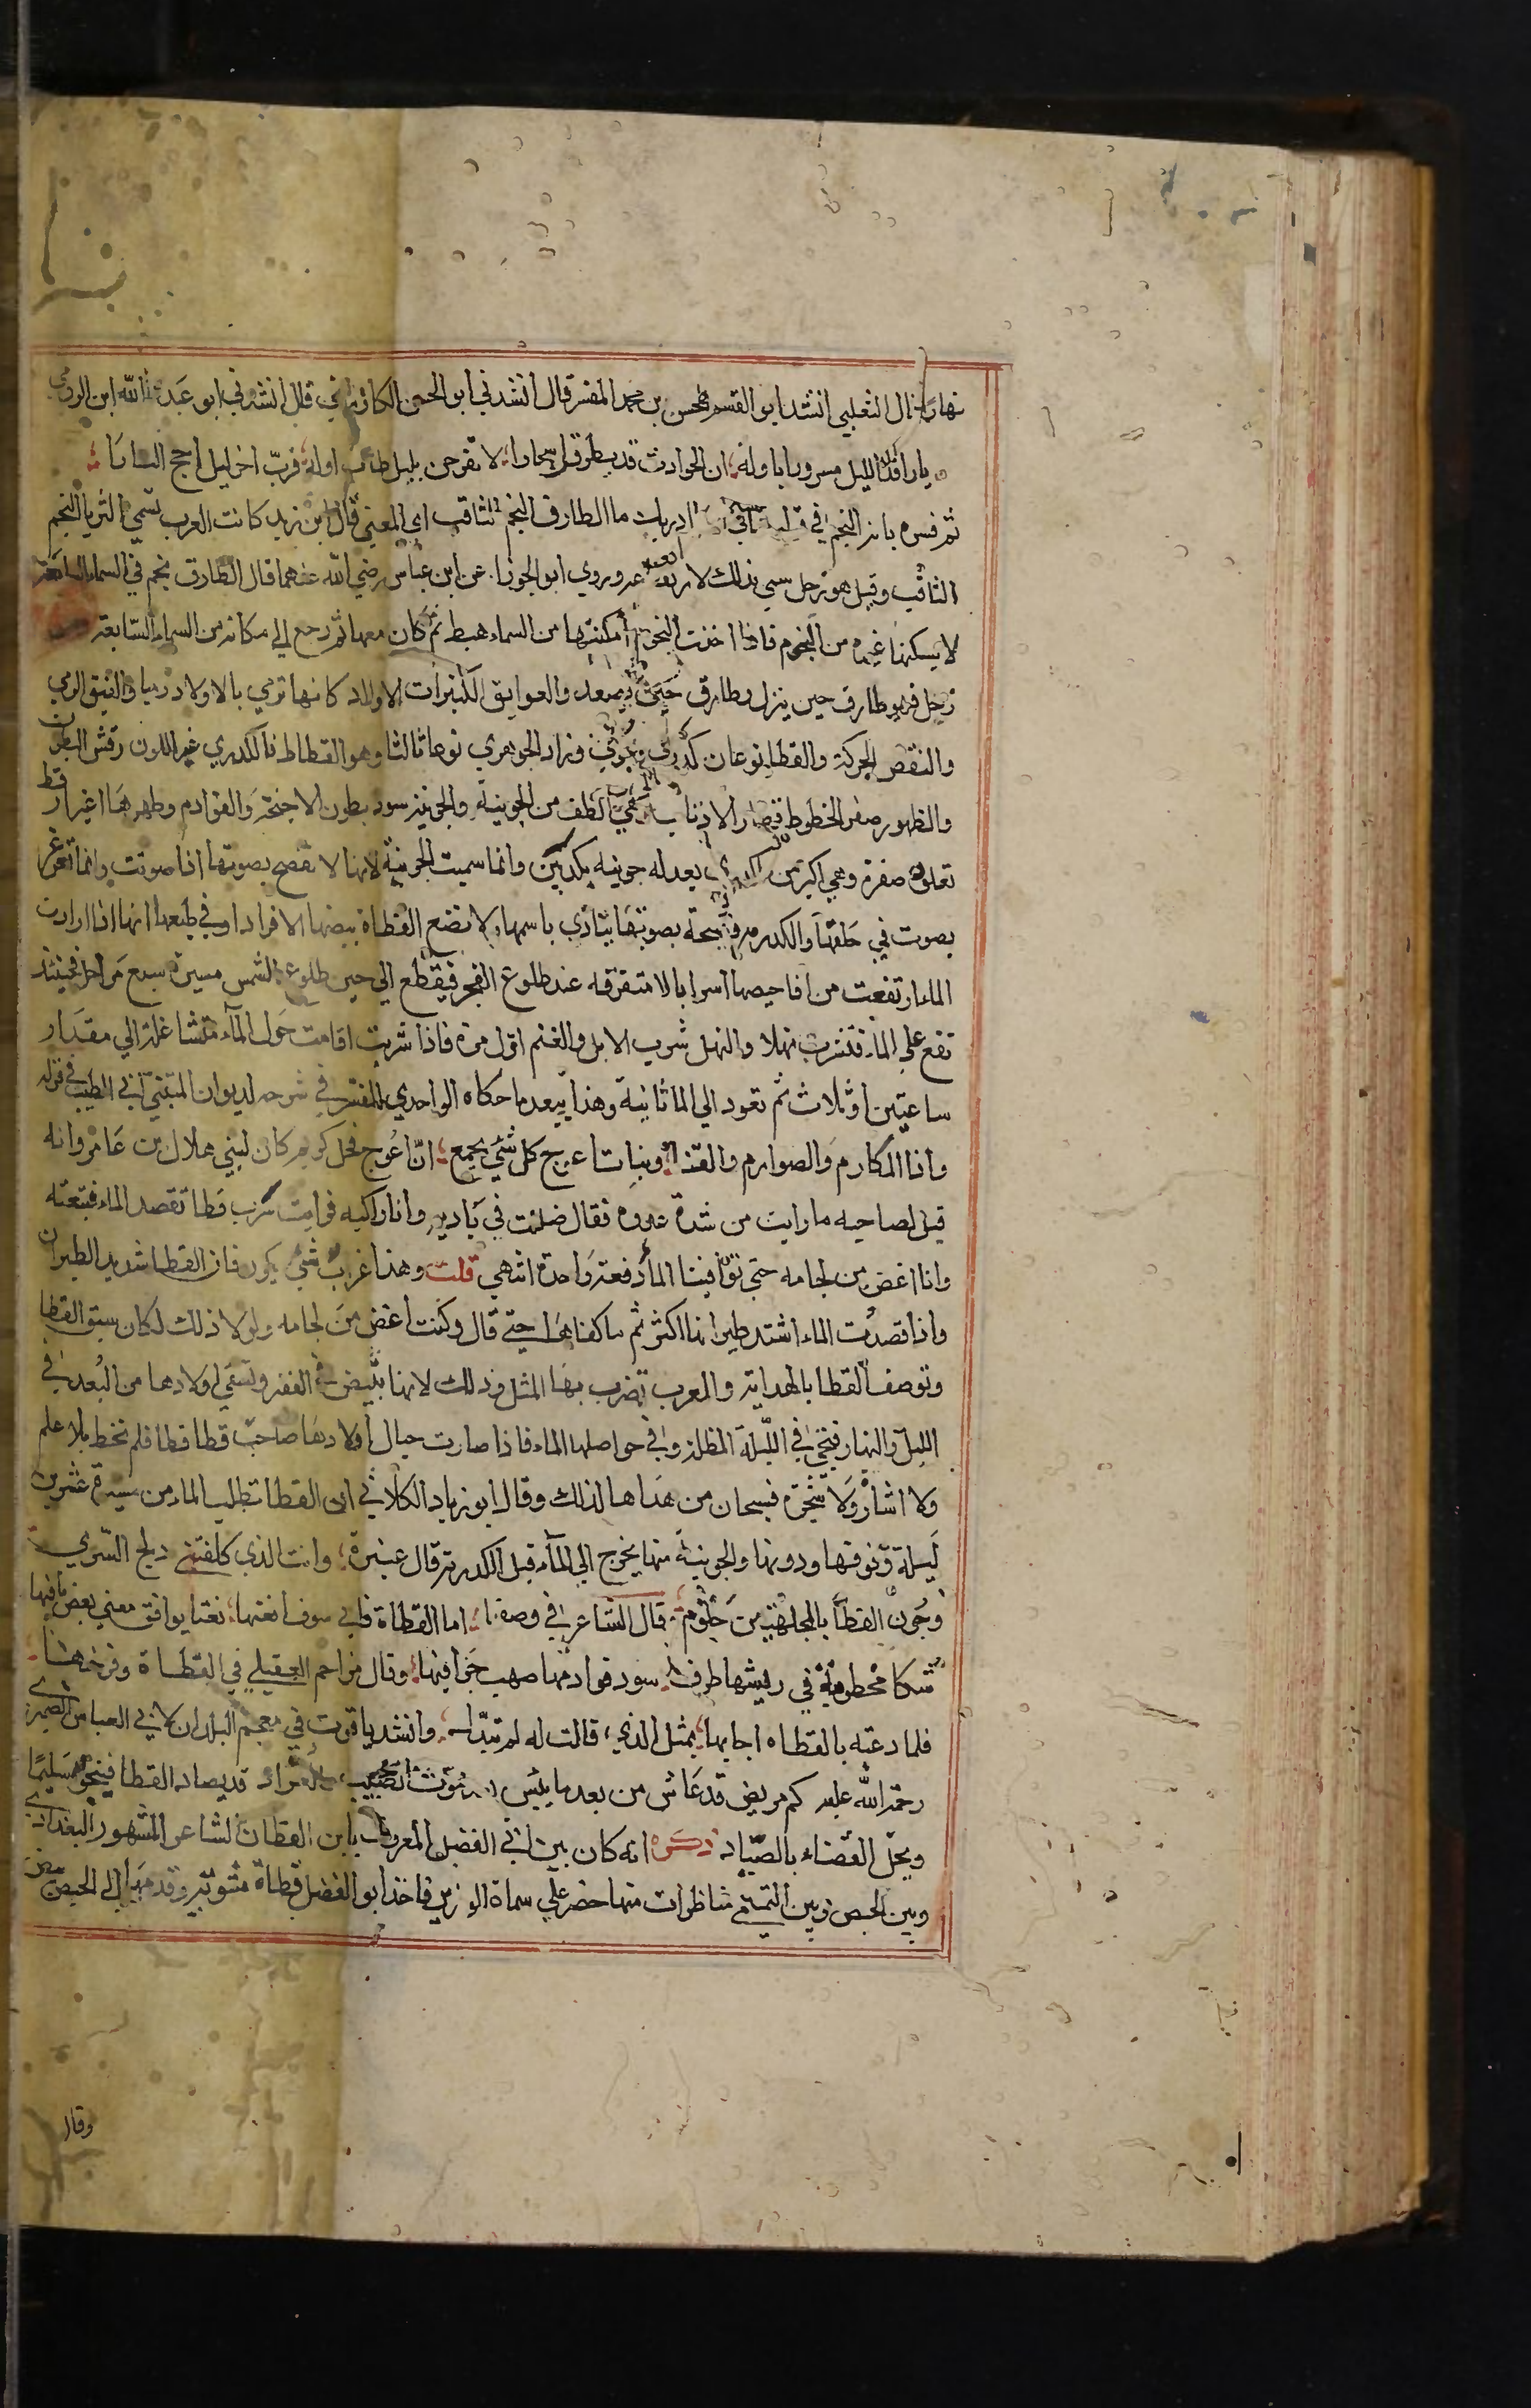 نهارا قال الثعلبي انشد ابو القسم الحسن بن محمد المفسر قال انشدني ابو الحسن الكازروني قال انشدني ابو عبد الله ابن الرومي
يا راقد الليل مسرورا باوله ان الحوادث قد يطرقن اسحارا لا تفرحن بليل طاب اوله فرب اخر ليل اجج النارا
ثم فسره بانه النجم في قوله تعالى وما ادريك ما الطارق النجم الثاقب اي المعني قال ابن زيد كانت العرب تسمي الثريا النجم
الثاقب وقيل هو زحل سمي بذلك لارتفاعه وروي ابو الجوزا عن ابن عباس رضي الله عنهما قال الطارق نجم في السماء السابعة
لا يسكنها غيره من النجوم فاذا اخذت النجوم امكنتها من السماء هبط ثم كان معها ثم رجع الي مكانه من السماء السابعة
زحل فهو طارق حين ينزل وطارق حين يصعد والعوايق الكثيرات الاولاد كانها ترمي بالاولاد رميا والفتق الرمي
والنفض الحركة والقطا نوعان كدري وجوني وزاد الجوهري نوعا ثالثا وهو القطاط فالكدري غبر اللون رقش البطون
والظهور صفر الخطوط قصار الاذناب وهي الطف من الجونية والجونية سود بطون الاجنحة والقوادم وظهرها اغبر ارقط
تعلوه صفرة وهي اكبر من الكدري يعدله جونيه بكدريتين وانما سميت الجونية لانها لا تفصح بصوتها اذا صوتت وانما تغرغر
بصوت في حلقها والكدرية فصيحة بصوتها تنادي باسمها ولا تضع القطاة بيضها الا افرادا وفي طبعها انها اذا ارادت
الماء ارتفعت من افاحيصها اسرابا لا متفرقه عند طلوع الفجر فيقطع الي حين طلوع الشمس مسيرة سبع مراحل فحينئذ
تقع علي الماء فتشرب نهلا والنهل شرب الابل والغنم اول مرة فاذا شربت اقامت حول الماء متشاغلة الي مقدار
ساعتين او ثلاث ثم تعود الي الما ثانية وهذا يبعد ما حكاه الواحدي المفسر في شرحه لديوان المتنبي ابي الطيب في قوله
وانا المكارم والصوارم والقنا وبنات اعوج كل شي يجمع ان اعوج فحل كريم كان لبني هلال بن عامر وانه
قيل لصاحبه ما رايت من شدة عدوه فقال ضللت في بادية وانا راكبه فرايت سرب قطا تقصد الماء فتبعته
وانا اغض من لجامه حتي توافينا الماء دفعة واحدة انتهي قلت وهذا اغرب شي يكون فان القطا شديد الطيران
واذا قصدت الماء اشتد طيرانها اكثر ثم ما كفا هذا حتي قال وكنت اغض من لجامه ولولا ذلك لكان يسبق القطا
وتوصف القطا بالهداية والعرب تضرب بها المثل وذلك لانها تبيض في القفر وتسقي اولادها من البعد في
الليل والنهار فتجي في الليلة المظلمة وفي حواصلها الماء فاذا صارت حيال اولادها صاحت قطا قطا فلم تخط بلا علم
ولا اشارة ولا شجرة فسبحان من هداها لذلك وقال ابو زياد الكلابي ان القطا تطلب الماء من مسيرة عشرين
ليلة وفوقها ودونها والجونية منها يخرج الي الماء قبل الكدرية قال عنترة وانت الذي كلفتني دلج السري
وجون القطا بالجلهتين جثوم قال الشاعر في وصفها اما القطاة فاني سوف انعتها نعتا يوافق معني بعض ما فيها
سكا مخطومة في ريشها طرف سود قوادمها صهب خوافيها وقال مزاحم العقيلي في القطاة وفرخها
فلما دعته بالقطاه اجابها بمثل الذي قالت له لم تبدل وانشد ياقوت في معجم البلدان لابي العباس الصيمري
رحمة الله عليه كم مريض قد عاش من بعد ما يئس موت الطبيب والعواد قد يصاد القطا فينجو سليما
ويحل القضاء بالصياد ذكره انه كان بين ابي الفضل المعروف بابن القطان الشاعر المشهور البغدادي
وبين الحيص وبيص التميمي مناظرات منها حضر علي سماط الوزير فاخذ ابو الفضل قطاة مشوية وقدمها الي الحيص بيص
وقال